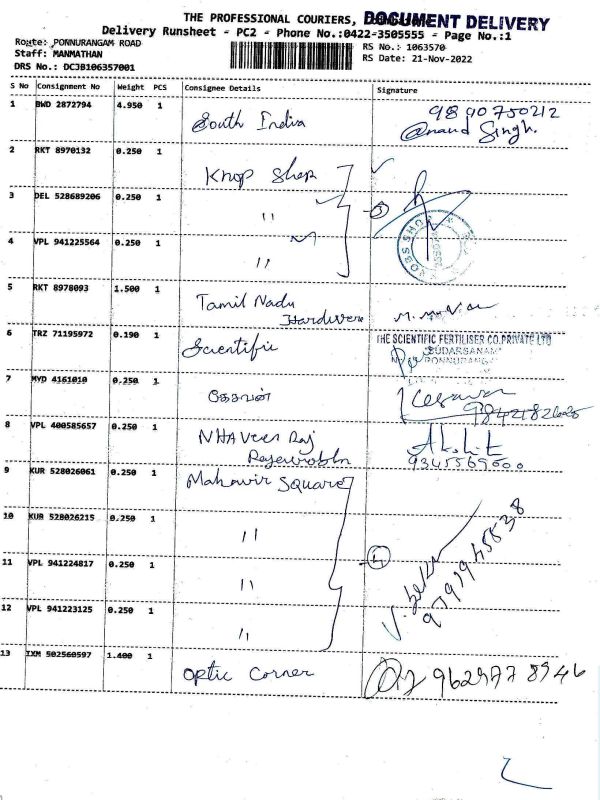 THE PROFESSIONAL COURIERS,
DOCUMENT DELIVERY
Delivery Runsheet - PC2 - Phone No.:0422-3505555 - Page No.:1
Route: PONNURANGAM ROAD
RS No.: 1063570
Staff: MANMATHAN
RS Date: 21-Nov-2022
DRS No.: DC3B106357001
S No Consignment No Weight PCS Consignee Details Signature
1 BWD 2872794 4.950 1 South India 9890750212
Anand Singh.
2 RKT 8970132 0.250 1 Knop Shop
3 DEL 528689206 0.250 1 " 3
4 VPL 941225564 0.250 1 "
5 RKT 8978093 1.500 1 Tamil Nadu
Hardware
6 TRZ 71195972 0.190 1 Scientific THE SCIENTIFIC FERTILISER CO.PRIVATE LTD
SUDARSANAM
7 MYD 4161010 0.250 1 கேசவன் Kesavan
8 VPL 400585657 0.250 1 NHA Veer Raj Akshit
9345569000
9 KUR 528026061 0.250 1 Mahavir Square
10 KUB 528026215 0.250 1 "
11 VPL 941224817 0.250 1 " 4
12 VPL 941223125 0.250 1 "
13 IXM 502560597 1.400 1 Optic Corner